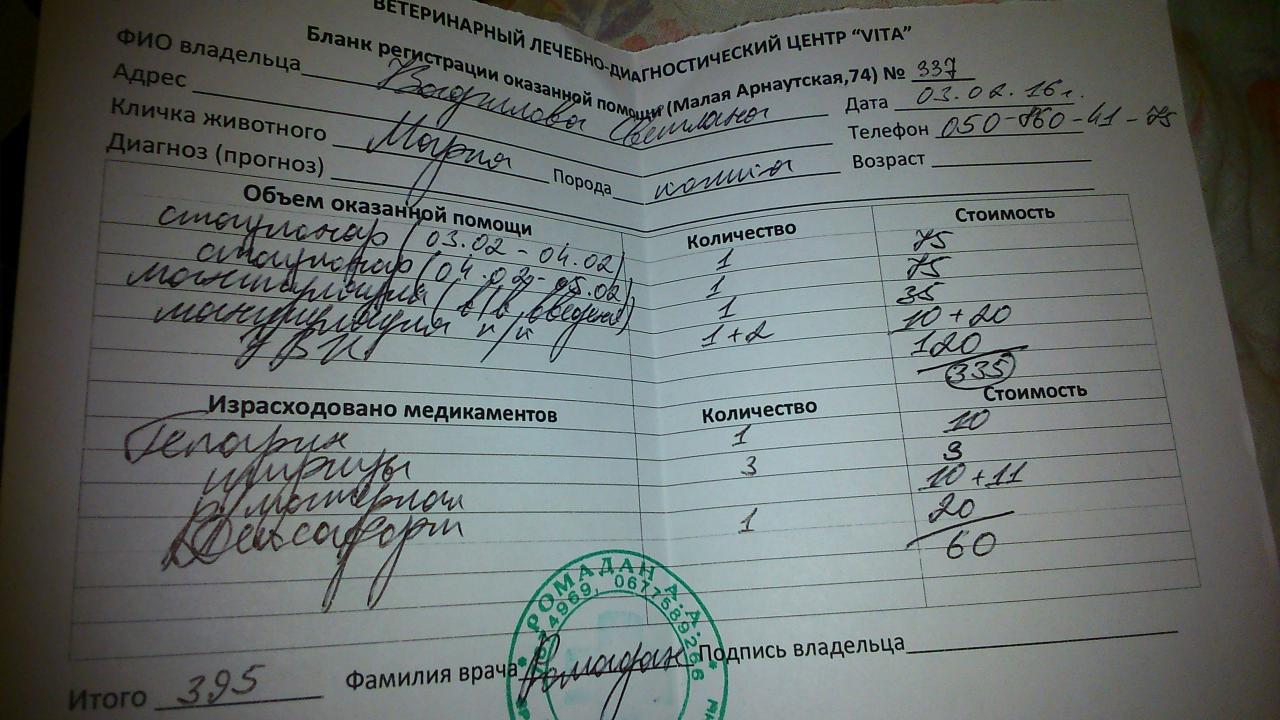 ВЕТЕРИНАРНЫЙ ЛЕЧЕБНО-ДИАГНОСТИЧЕСКИЙ ЦЕНТР "VITA"
Бланк регистрации оказанной помощи (Малая Арнаутская,74) № 337
ФИО владельца Светлана Дата 03.02.16г.
Адрес Телефон 050-760-41-75
Кличка животного Мария Порода кошка Возраст
Диагноз (прогноз)
Объем оказанной помощи Количество Стоимость
стационар (03.02 - 04.02) 1 75
стационар (04.02 - 05.02) 1 75
манипуляция (в/в введение) 1 35
манипуляция п/к 1+2 10+20
УЗИ 120
335
Израсходовано медикаментов Количество Стоимость
Гепарин 1 10
шприцы 3 3
р/материал 10+11
Дексафорт 1 20
60
РОМАДАН А.А.
0677589266
Итого 395 Фамилия врача Ромадан Подпись владельца